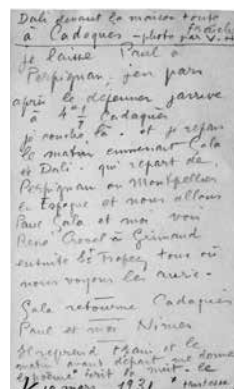 Dali devant la maison toute
à Cadaques - photo par V. H
je laisse Paul à
Perpignan, j'en pars
après le déjeuner j'arrive
à 4h à Cadaquès
je couche là. et je repars
le matin emmenant Gala
et Dali. qui repart de
Perpignan ou Montpellier
en Espagne et nous allons
Paul Gala et moi voir
René Crevel à Grimaud
ensuite St Tropez, tous où
nous voyons les
Gala retourne Cadaquès
Paul et moi Nîmes
Il reprend train et le
matin avant départ me donne
poème écrit la nuit. le
mars 1931